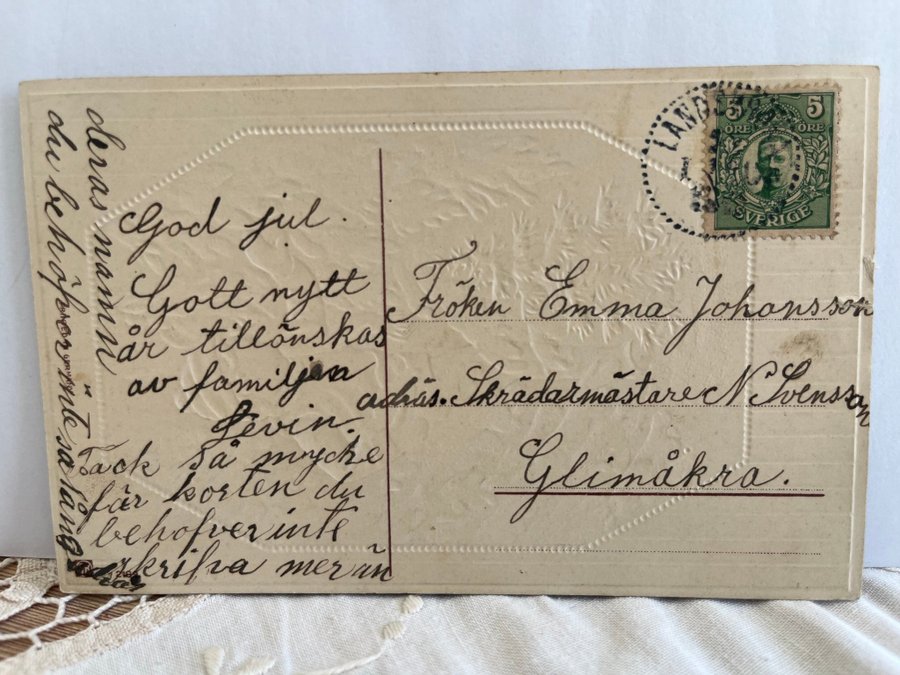 God jul.
Gott nytt
år tillönskas
av familjen
Levin.
Tack så mycke
får korten du
behofver inte
skrifva mer än
deras namn
du behöfver inte så lång
adräs
Fröken Emma Johansson
adräs. Skrädarmästare N Svensson
Glimåkra.
LANDS
5 5
ÖRE ÖRE
SVERIGE